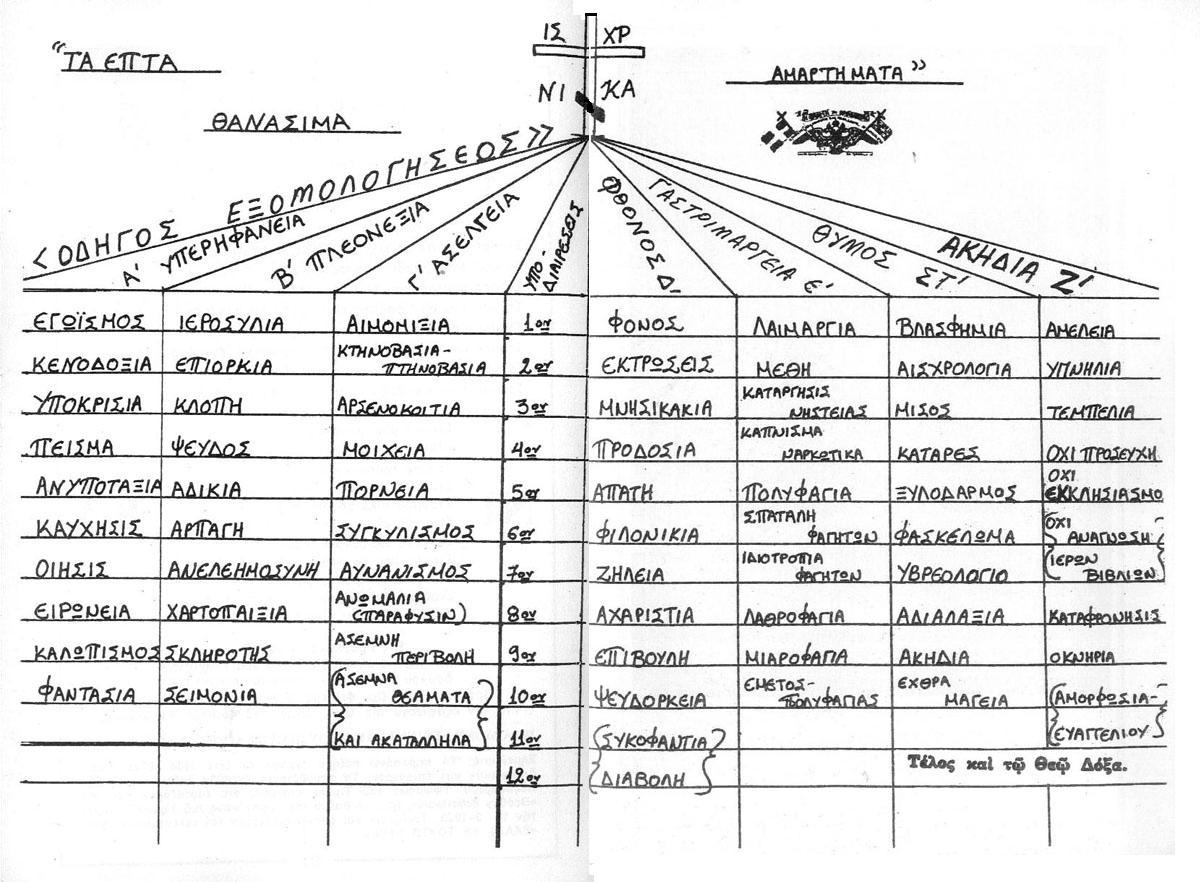 ΙΣ ΧΡ
“ΤΑ ΕΠΤΑ
ΑΜΑΡΤΗΜΑΤΑ”
ΝΙ ΚΑ
ΘΑΝΑΣΙΜΑ
<ΟΔΗΓΟΣ ΕΞΟΜΟΛΟΓΗΣΕΟΣ>>
Α' ΥΠΕΡΗΦΑΝΕΙΑ
Β' ΠΛΕΟΝΕΞΙΑ
Γ' ΑΣΕΛΓΕΙΑ
ΥΠΟ-
ΔΙΑΙΡΕΣΕΙΣ
ΦΘΟΝΟΣ Δ'
ΓΑΣΤΡΙΜΑΡΓΕΙΑ Ε'
ΘΥΜΟΣ ΣΤ'
ΑΚΗΔΙΑ Ζ'
ΕΓΩΪΣΜΟΣ ΙΕΡΟΣΥΛΙΑ ΑΙΜΟΜΙΞΙΑ 1ον ΦΟΝΟΣ ΛΑΙΜΑΡΓΙΑ ΒΛΑΣΦΗΜΙΑ ΑΜΕΛΕΙΑ
ΚΕΝΟΔΟΞΙΑ ΕΠΙΟΡΚΙΑ ΚΤΗΝΟΒΑΣΙΑ-ΠΤΗΝΟΒΑΣΙΑ 2ον ΕΚΤΡΩΣΕΙΣ ΜΕΘΗ ΑΙΣΧΡΟΛΟΓΙΑ ΥΠΝΗΛΙΑ
ΥΠΟΚΡΙΣΙΑ ΚΛΟΠΗ ΑΡΣΕΝΟΚΟΙΤΙΑ 3ον ΜΝΗΣΙΚΑΚΙΑ ΚΑΤΑΡΓΗΣΙΣ ΝΗΣΤΕΙΑΣ ΜΙΣΟΣ ΤΕΜΠΕΛΙΑ
ΠΕΙΣΜΑ ΨΕΥΔΟΣ ΜΟΙΧΕΙΑ 4ον ΠΡΟΔΟΣΙΑ ΚΑΠΝΙΣΜΑ ΝΑΡΚΩΤΙΚΑ ΚΑΤΑΡΕΣ ΟΧΙ ΠΡΟΣΕΥΧΗ
ΑΝΥΠΟΤΑΞΙΑ ΑΔΙΚΙΑ ΠΟΡΝΕΙΑ 5ον ΑΠΑΤΗ ΠΟΛΥΦΑΓΙΑ ΞΥΛΟΔΑΡΜΟΣ ΟΧΙ ΕΚΚΛΗΣΙΑΣΜΟ
ΚΑΥΧΗΣΙΣ ΑΡΠΑΓΗ ΣΥΓΚΥΛΙΣΜΟΣ 6ον ΦΙΛΟΝΙΚΙΑ ΣΠΑΤΑΛΗ ΦΑΓΗΤΩΝ ΦΑΣΚΕΛΩΜΑ (ΟΧΙ ΑΝΑΓΝΩΣΗ
ΟΙΗΣΙΣ ΑΝΕΛΕΗΜΟΣΥΝΗ ΑΥΝΑΝΙΣΜΟΣ 7ον ΖΗΛΕΙΑ ΙΔΙΟΤΡΟΠΙΑ ΦΑΓΗΤΩΝ ΥΒΡΕΟΛΟΓΙΟ ΙΕΡΩΝ ΒΙΒΛΙΩΝ)
ΕΙΡΩΝΕΙΑ ΧΑΡΤΟΠΑΙΞΙΑ ΑΝΩΜΑΛΙΑ (ΠΑΡΑΦΥΣΙΝ) 8ον ΑΧΑΡΙΣΤΙΑ ΛΑΘΡΟΦΑΓΙΑ ΑΔΙΑΛΑΞΙΑ ΚΑΤΑΦΡΟΝΗΣΙΣ
ΚΑΛΩΠΙΣΜΟΣ ΣΚΛΗΡΟΤΗΣ ΑΣΕΜΝΗ ΠΕΡΙΒΟΛΗ 9ον ΕΠΙΒΟΥΛΗ ΜΙΑΡΟΦΑΓΙΑ ΑΚΗΔΙΑ ΟΚΝΗΡΙΑ
ΦΑΝΤΑΣΙΑ ΣΕΙΜΟΝΙΑ (ΑΣΕΜΝΑ ΘΕΑΜΑΤΑ 10ον ΨΕΥΔΟΡΚΕΙΑ ΕΜΕΤΟΣ-ΠΟΛΥΦΑΓΙΑΣ ΕΧΘΡΑ ΜΑΓΕΙΑ (ΑΜΟΡΦΩΣΙΑ-
ΚΑΙ ΑΚΑΤΑΛΛΗΛΑ) 11ον (ΣΥΚΟΦΑΝΤΙΑ ΕΥΑΓΓΕΛΙΟΥ)
12ον ΔΙΑΒΟΛΗ) Τέλος καὶ τῷ Θεῷ Δόξα.